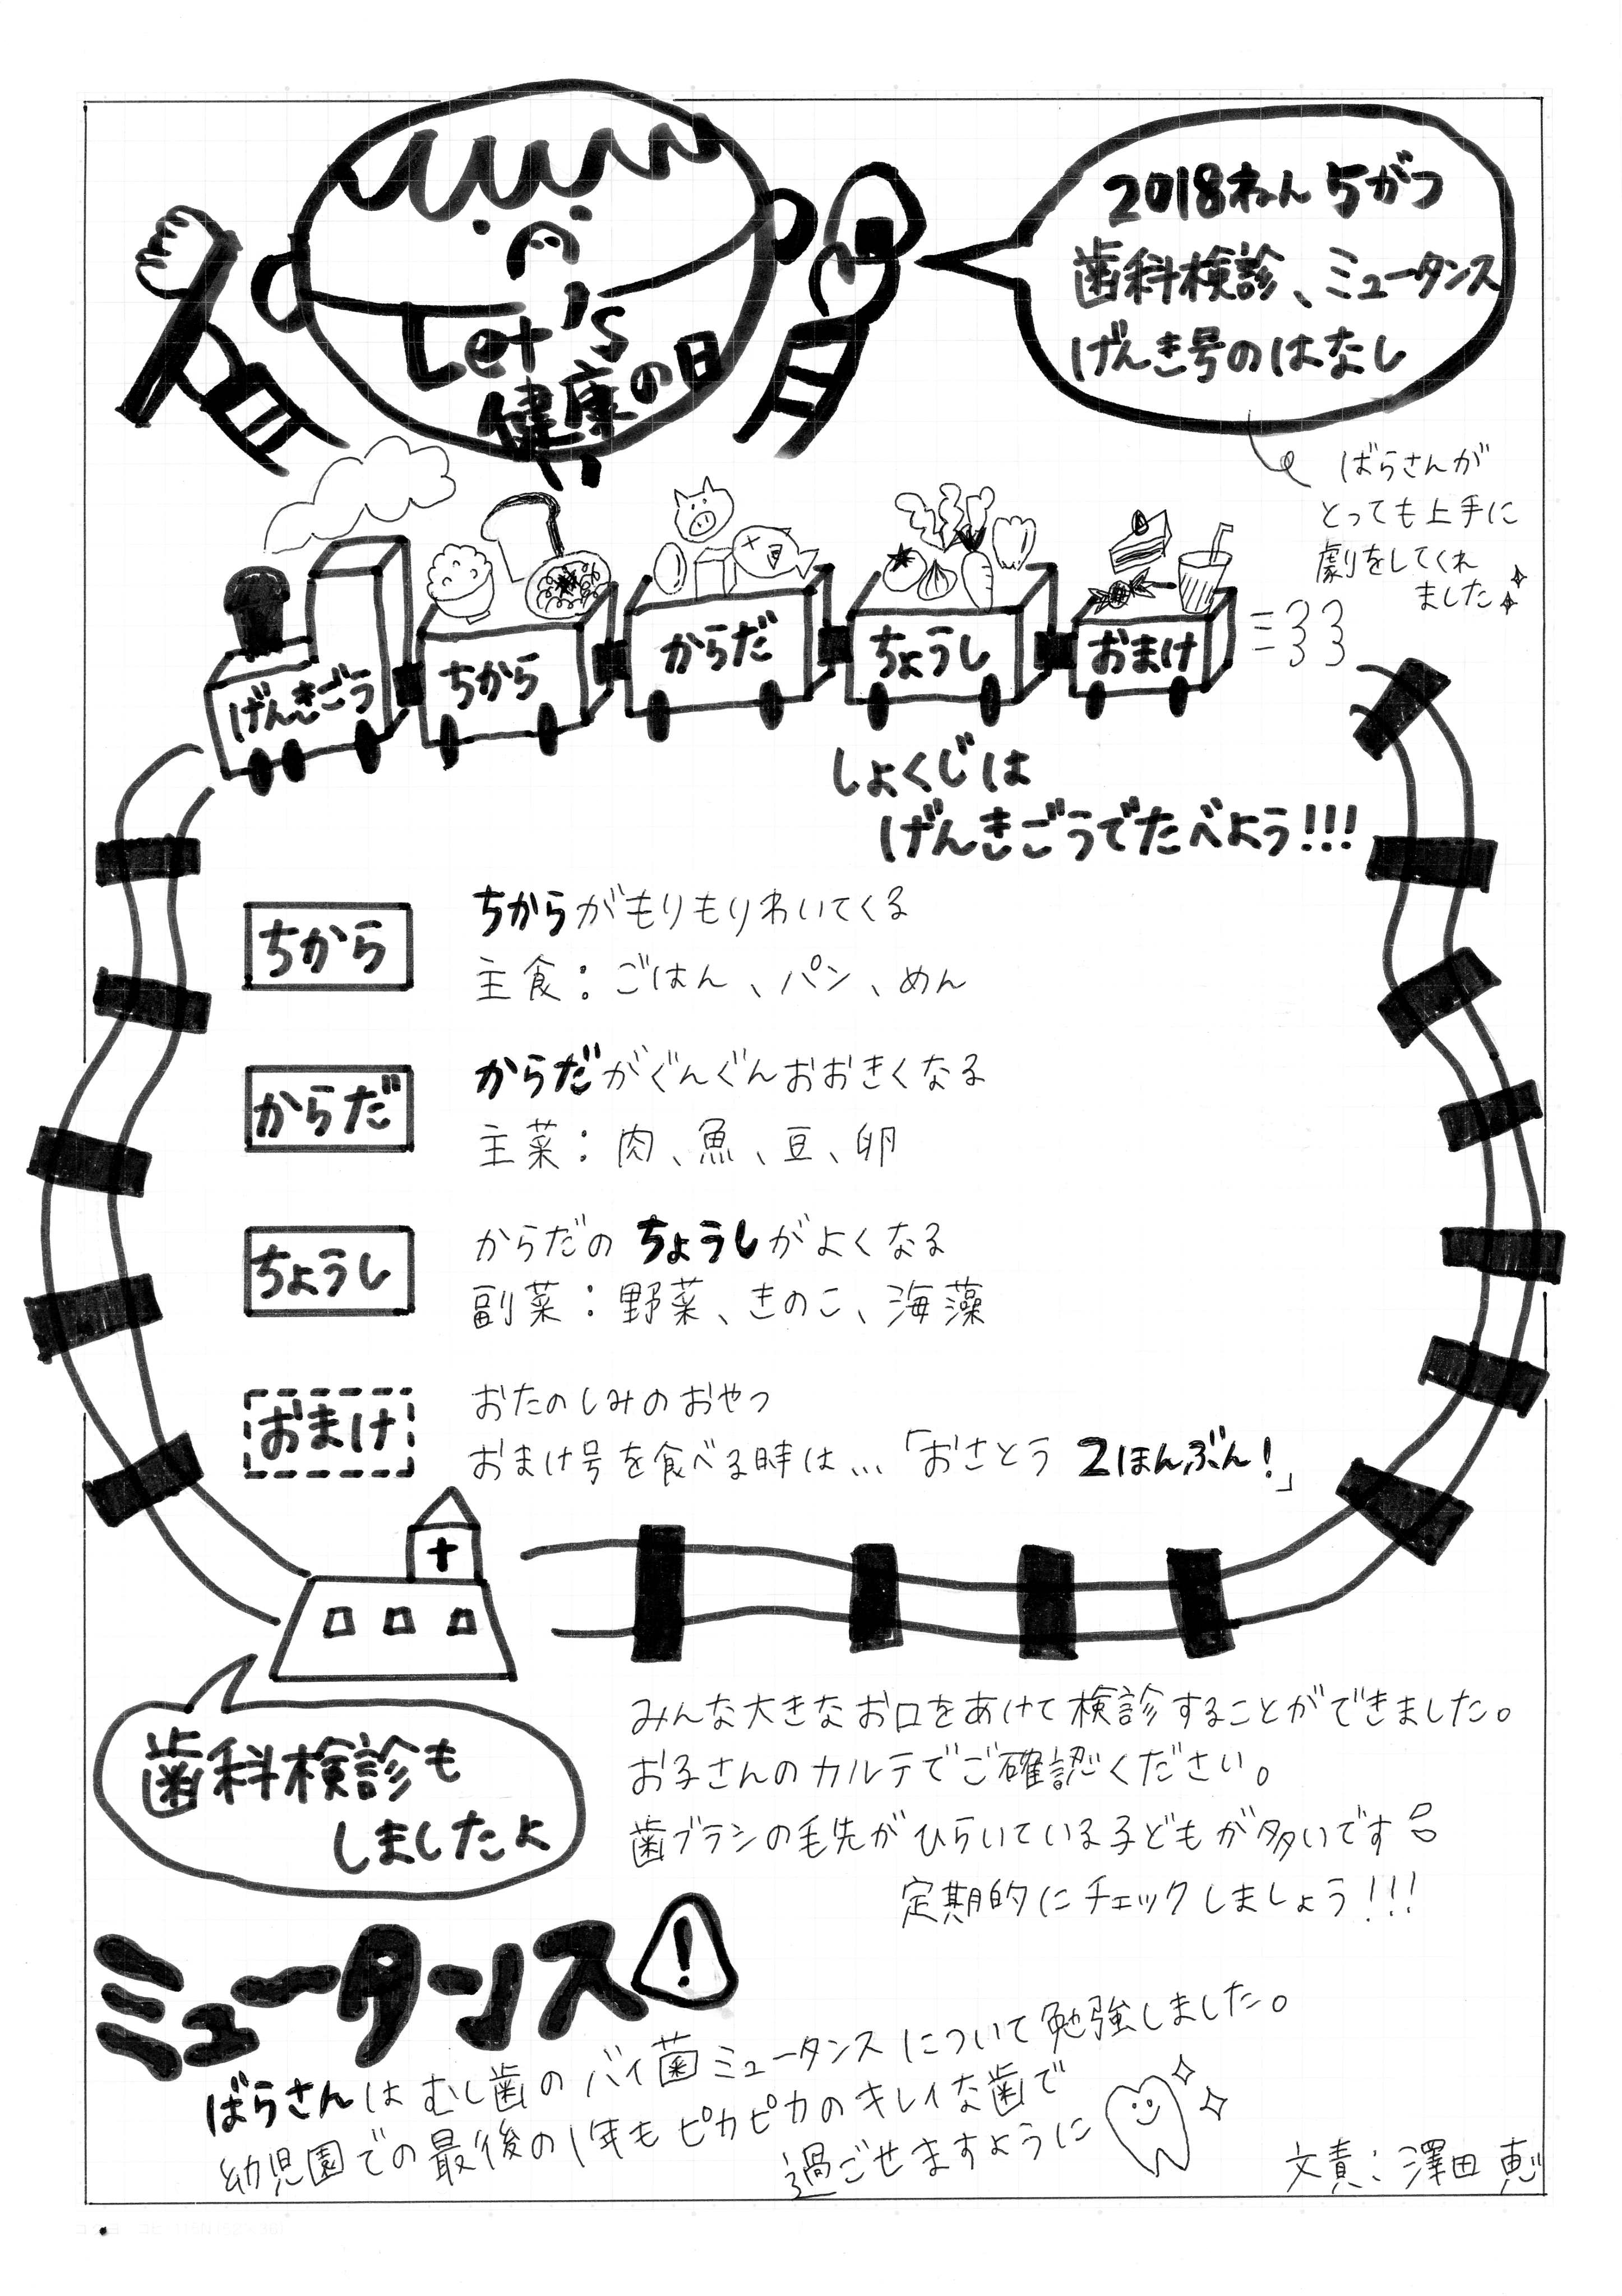 Let's
健康の日
2018ねん 5がつ
歯科検診、ミュータンス
げんき号のはなし
ばらさんが
とっても上手に
劇をしてくれ
ました
げんきごう
ちから
からだ
ちょうし
おまけ
しょくじは
げんきごうでたべよう!!!
ちから
ちからがもりもりわいてくる
主食：ごはん、パン、めん
からだ
からだがぐんぐんおおきくなる
主菜：肉、魚、豆、卵
ちょうし
からだのちょうしがよくなる
副菜：野菜、きのこ、海藻
おまけ
おたのしみのおやつ
おまけ号を食べる時は…「おさとう 2ほんぶん!」
歯科検診も
しましたよ
みんな大きなお口をあけて検診することができました。
お子さんのカルテでご確認ください。
歯ブラシの毛先がひらいている子どもが多いです
定期的にチェックしましょう!!!
ミュータンス
ばらさんはむし歯のバイ菌ミュータンスについて勉強しました。
幼児園での最後の1年もピカピカのキレイな歯で
過ごせますように
文責：澤田 恵